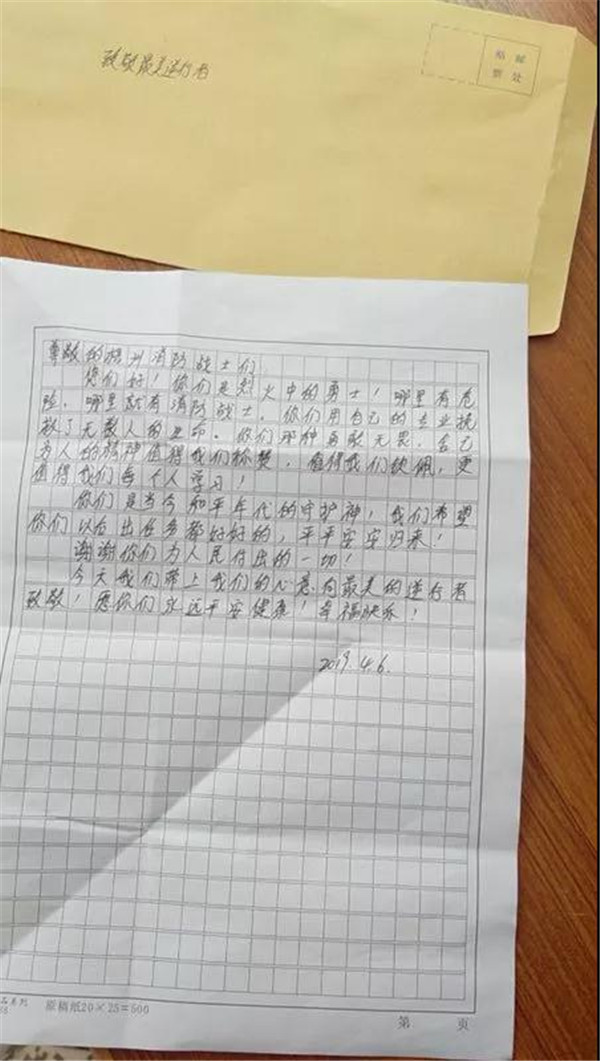 致敬最美逆行者
贴 邮
票 处
尊敬的梧州消防战士们
您们好！你们是烈火中的勇士！哪里有危
险，哪里就有消防战士。你们用自己的专业挽
救了无数人的生命。你们那种勇敢无畏、舍己
为人的精神值得我们称赞，值得我们钦佩，更
值得我们每个人学习！
你们是当今和平年代的守护神！我们希望
你们以后出任务都好好的，平平安安归来！
谢谢你们为人民付出的一切！
今天我们带上我们的心意向最美的逆行者
致敬！愿你们永远平安健康！幸福快乐！
2019.4.6.
品系列
原稿纸20×25=500
第 页